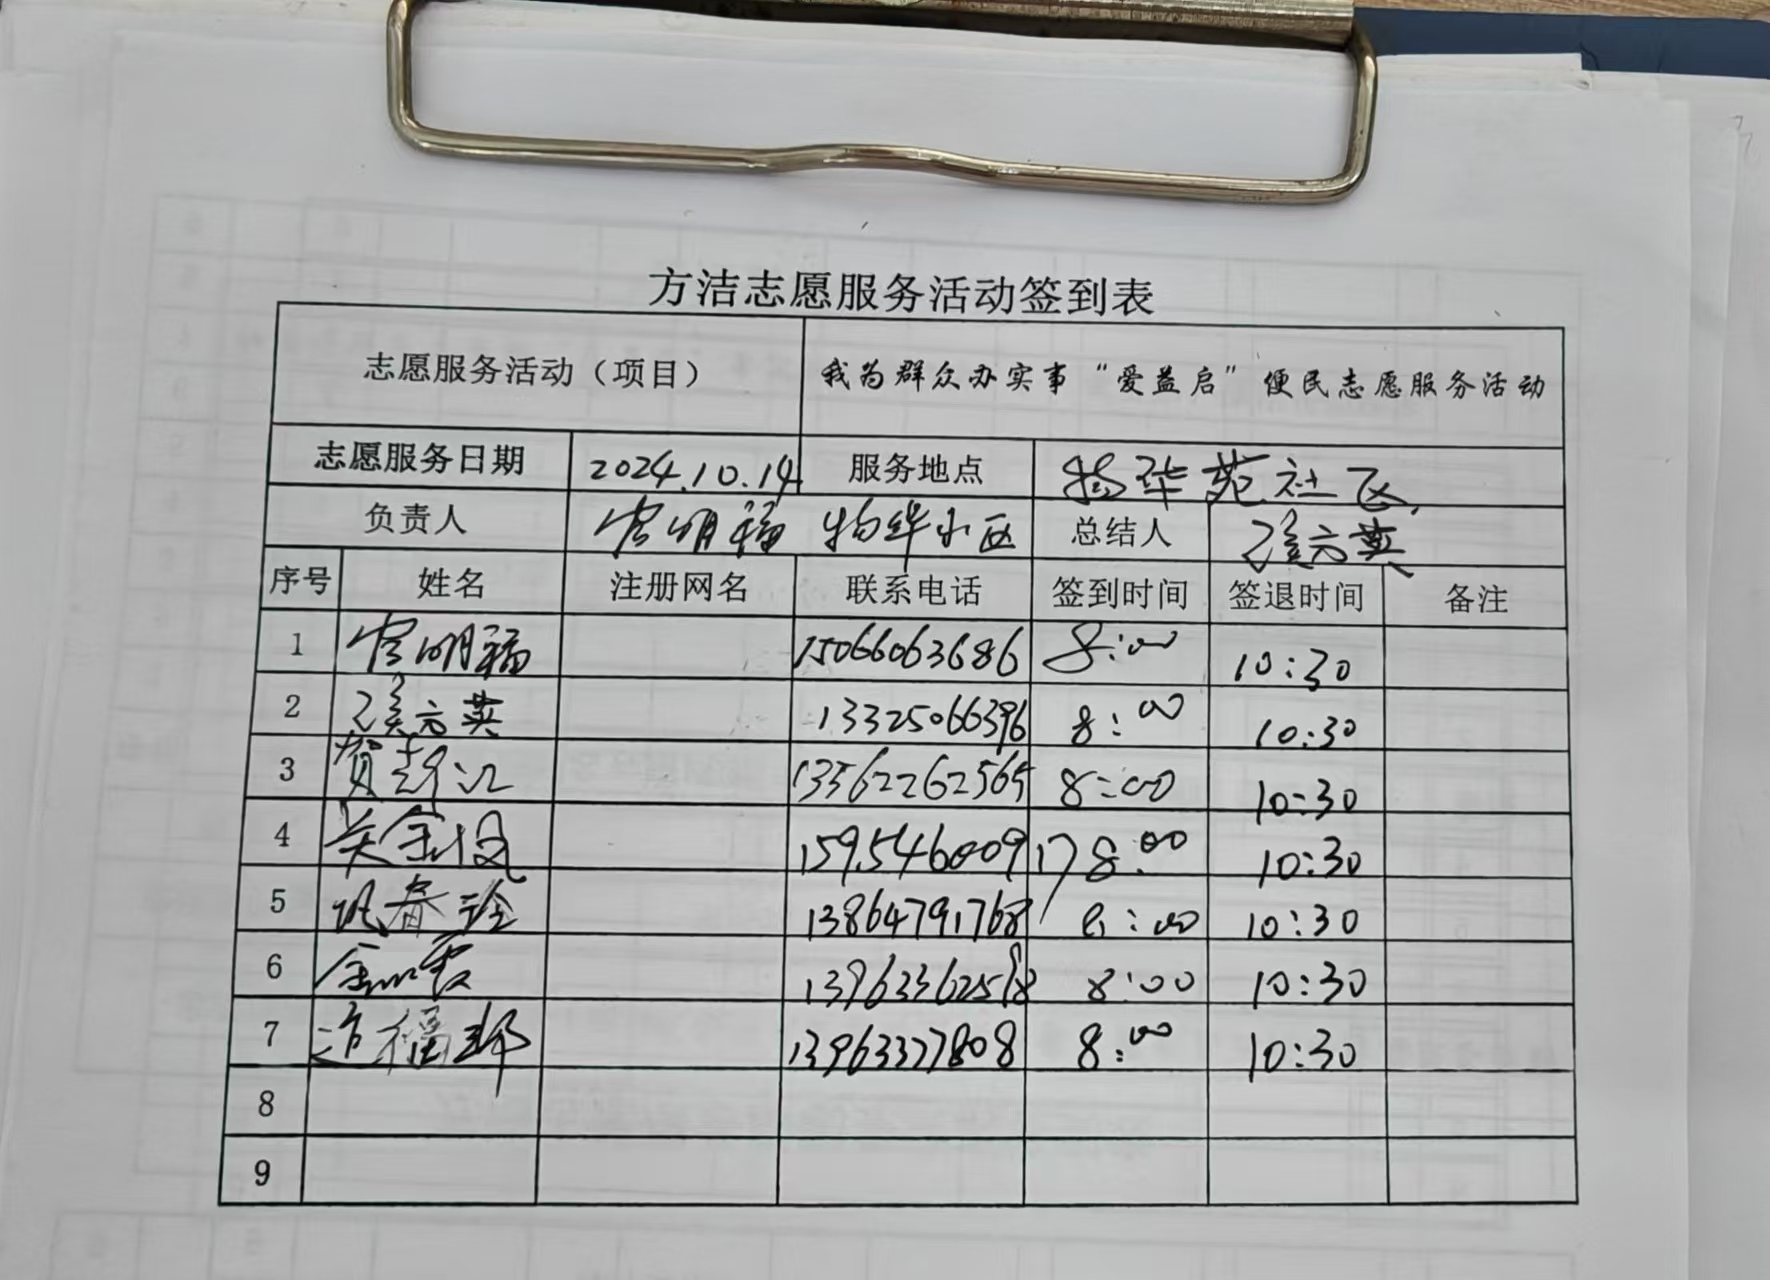 方洁志愿服务活动签到表
志愿服务活动（项目） 我为群众办实事“爱益启”便民志愿服务活动
志愿服务日期 2024.10.14 服务地点 物华苑社区
负责人 宫明福 物华小区 总结人
序号 姓名 注册网名 联系电话 签到时间 签退时间 备注
1 宫明福 15066063686 8:00 10:30
2 13325066396 8:00 10:30
3 贺 13562262565 8:00 10:30
4 15954600917 8:00 10:30
5 13864791768 8:00 10:30
6 8:00 10:30
7 福 13963377808 8:00 10:30
8
9